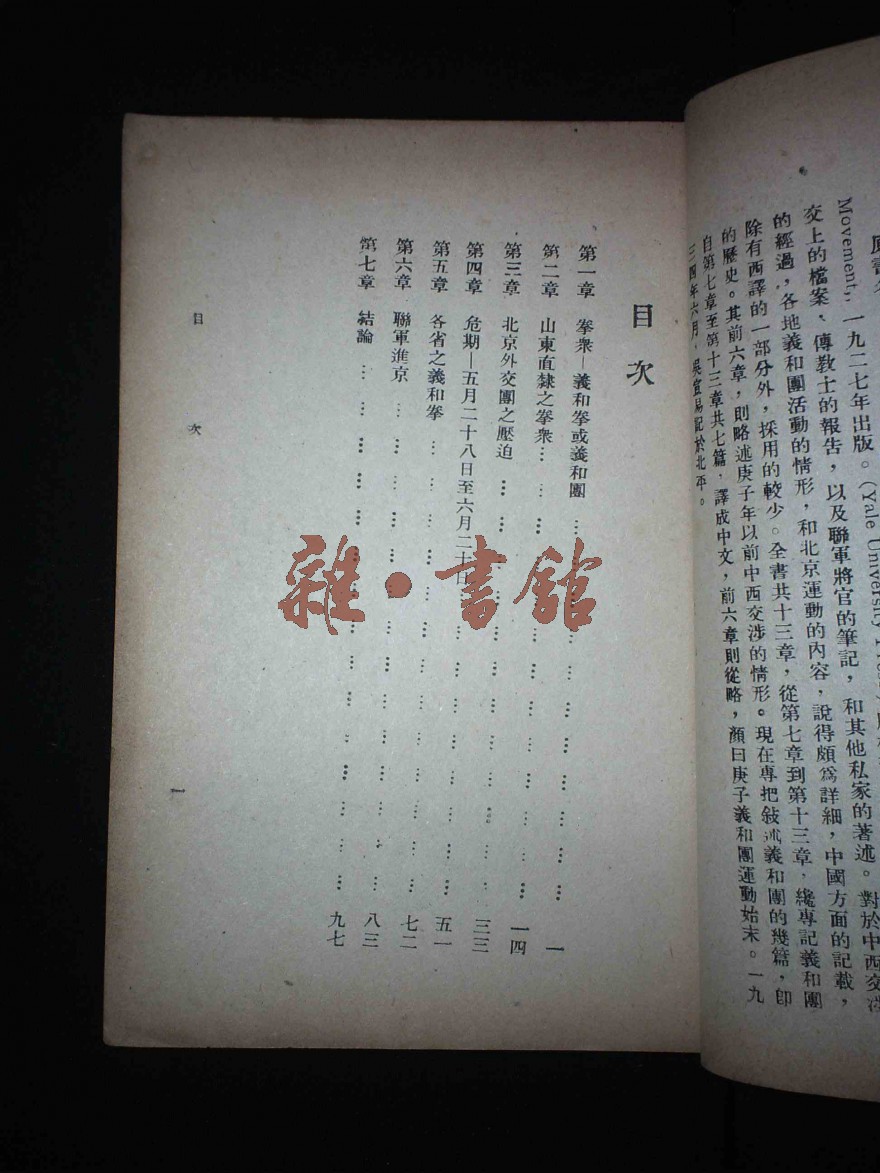 Movement,, 一九二七年出版。(Yale University
交上的檔案、傳教士的報告，以及聯軍將官的筆記，和其他私家的著述。對於中西交涉
的經過，各地義和團活動的情形，和北京運動的內容，說得頗爲詳細，中國方面的記載，
除有西譯的一部分外，採用的較少。全書共十三章，從第七章到第十三章，纔專記義和團
的歷史。其前六章，則略述庚子年以前中西交涉的情形。現在專把敍述義和團的幾篇，卽
自第七章至第十三章共七篇，譯成中文，前六章則從略，顏曰庚子義和團運動始末。一九
三四年六月，吳宣易記於北平。
目次
第一章 拳衆—義和拳或義和團 …… 一
第二章 山東直隸之拳衆 …… 一四
第三章 北京外交團之壓迫 …… 三三
第四章 危期—五月二十八日至六月二十日 …… 五一
第五章 各省之義和拳 …… 七二
第六章 聯軍進京 …… 八三
第七章 結論 …… 九七
目次 一
雜·書館